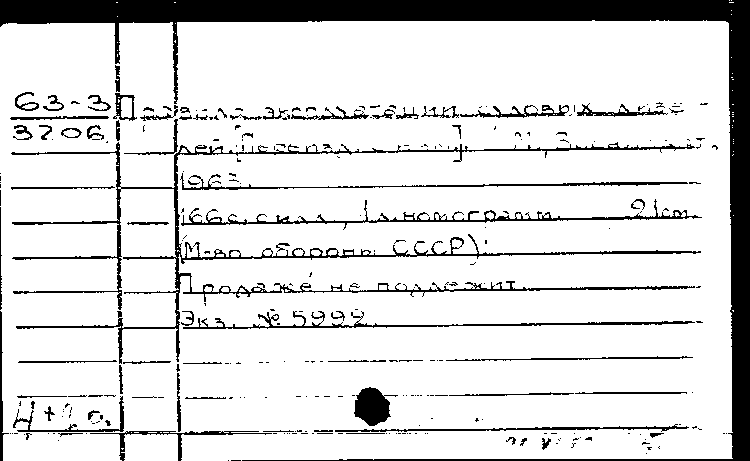 63-3 Правила эксплуатации судовых дизе-
3706 лей. [Переизд. с изм]. М., Воениздат,
1963.
166с. с илл., 1 л. номограмм. 21см.
(М-во обороны СССР).
Продаже не подлежит.
Экз. № 5992